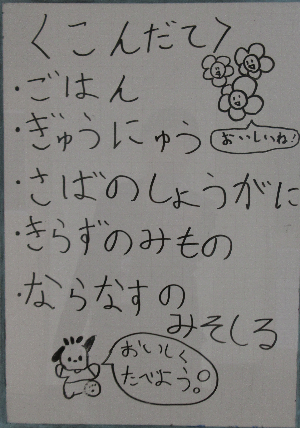 〈こんだて〉
・ごはん
・ぎゅうにゅう
おいしいね!
・さばのしょうがに
・きらずのみもの
・ならなすの
みそしる
おいしく
たべよう。